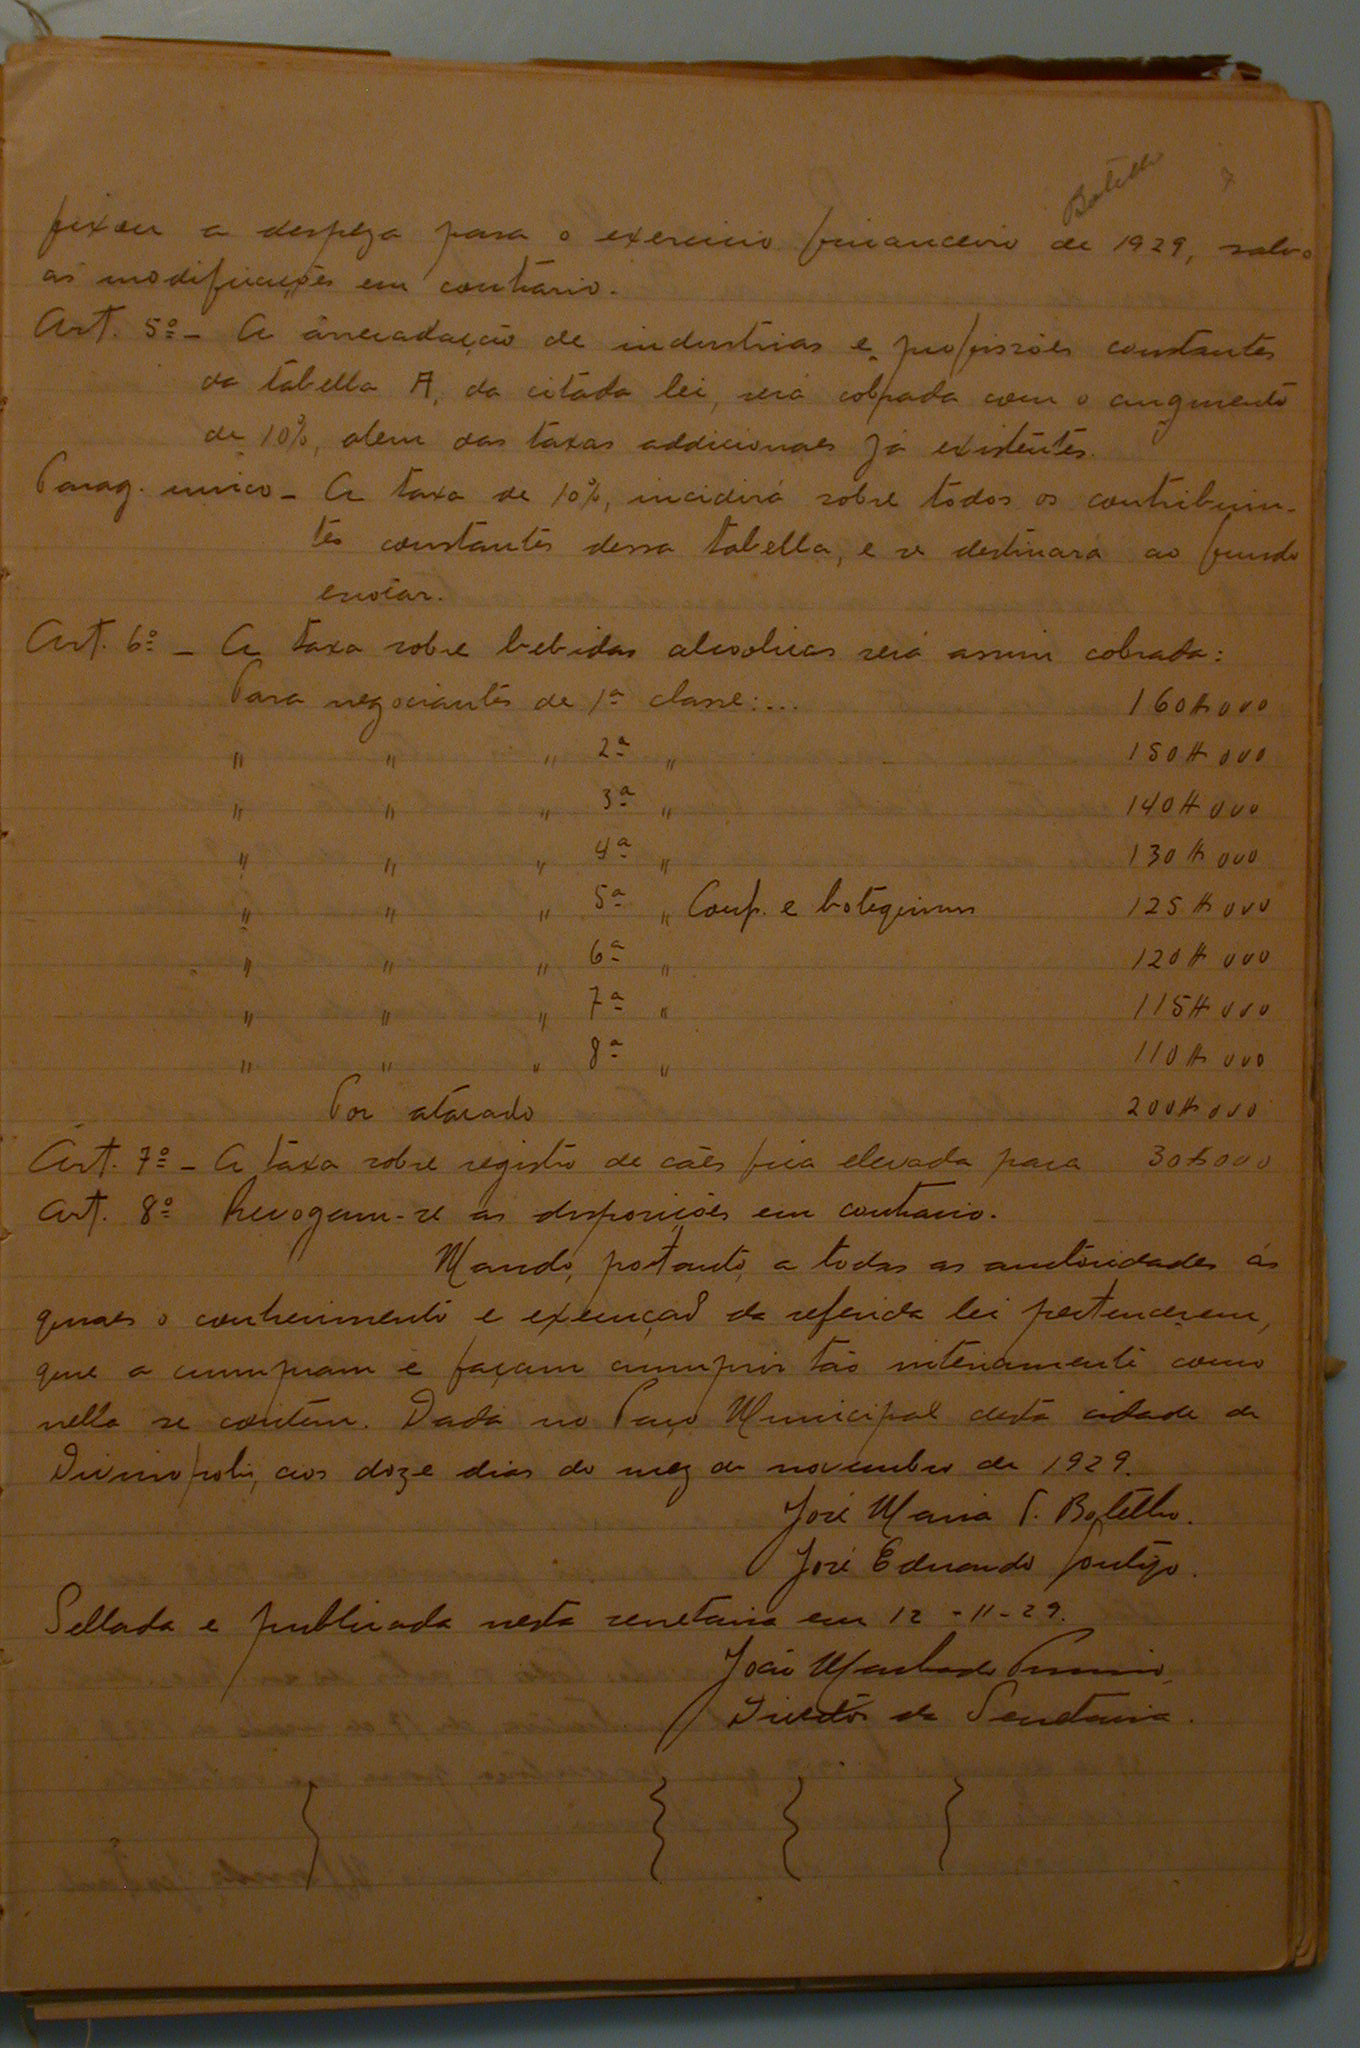 Botelho 7
fixou a despeza para o exercicio financeiro de 1929, salvo
as modificações em contrario.
Art. 5º - A arrecadação de industrias e profissões constantes
da tabella A, da citada lei, será cobrada com o augmento
de 10%, alem das taxas addicionaes já existentes.
Parag. unico - A taxa de 10%, incidirá sobre todos os contribuin-
tes constantes dessa tabella, e se destinará ao fundo
escolar.
Art. 6º - A taxa sobre bebidas alcoolicas será assim cobrada:
Para negociantes de 1ª classe:... 160$000
" " " 2ª " 150$000
" " " 3ª " 140$000
" " " 4ª " 130$000
" " " 5ª " Conf. e botequins 125$000
" " " 6ª " 120$000
" " " 7ª " 115$000
" " " 8ª " 110$000
Por atacado 200$000
Art. 7º - A taxa sobre registro de cães fica elevada para 30$000
Art. 8º Revogam-se as disposições em contrario.
Mando, portanto, a todas as autoridades ás
quaes o conhecimento e execução da referida lei pertencerem,
que a cumpram e façam cumprir tão inteiramente como
nella se contém. Dada no Paço Municipal desta cidade de
Divinopolis, aos doze dias do mez de novembro de 1929.
José Maria P. Botelho.
José Eduardo
Sellada e publicada nesta secretaria em 12-11-29.
João Machado
Director da Secretaria.